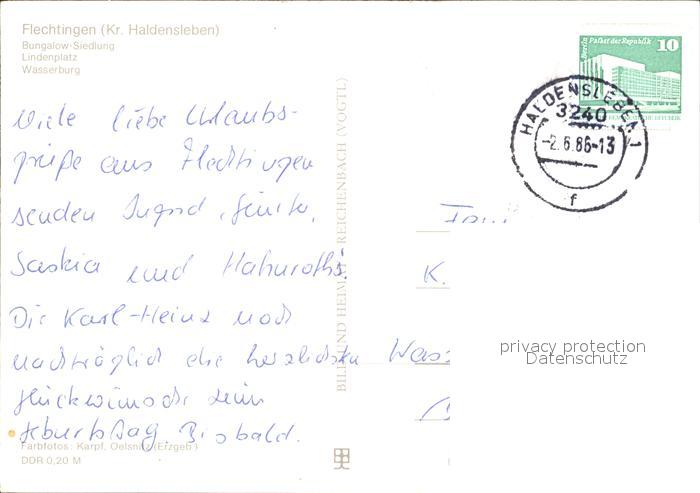 Flechtingen (Kr. Haldensleben)
Bungalow-Siedlung
Lindenplatz
Wasserburg
Berlin Palast der Republik 10
HALDENSLEBEN 1
3240
-2.6.86-13
f
Viele liebe Urlaubs-
grüße aus Flechtingen
senden Ingrid, Günter,
Saskia und
Dir Karl-Heinz noch
nachträglich die herzlichsten
Glückwünsche zum
Geburtstag. Bis bald.
Fam.
K.
Was
BILD UND HEIMAT REICHENBACH (VOGTL)
privacy protection
Datenschutz
Farbfotos: Karpf, Oelsnitz (Erzgeb.)
DDR 0,20 M